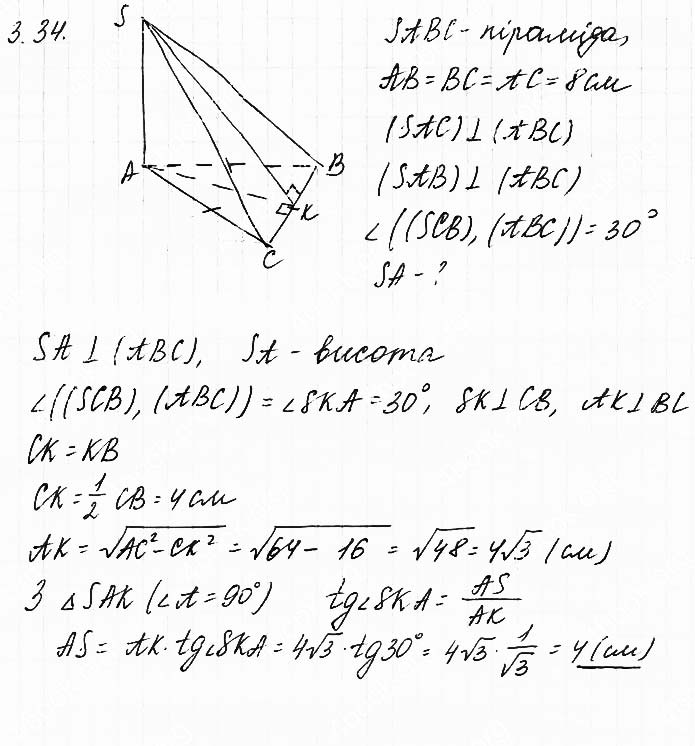 3.34.
S
A
B
K
C
SABC - піраміда,
AB = BC = AC = 8 см
(SAC) ⊥ (ABC)
(SAB) ⊥ (ABC)
∠((SCB), (ABC)) = 30°
SA - ?
SA ⊥ (ABC), SA - висота
∠((SCB), (ABC)) = ∠SKA = 30°, SK ⊥ CB, AK ⊥ BC
CK = KB
CK = 1/2 CB = 4 см
AK = √(AC² - CK²) = √(64 - 16) = √48 = 4√3 (см)
З △SAK (∠A = 90°) tg∠SKA = AS/AK
AS = AK · tg∠SKA = 4√3 · tg30° = 4√3 · 1/√3 = 4 (см)